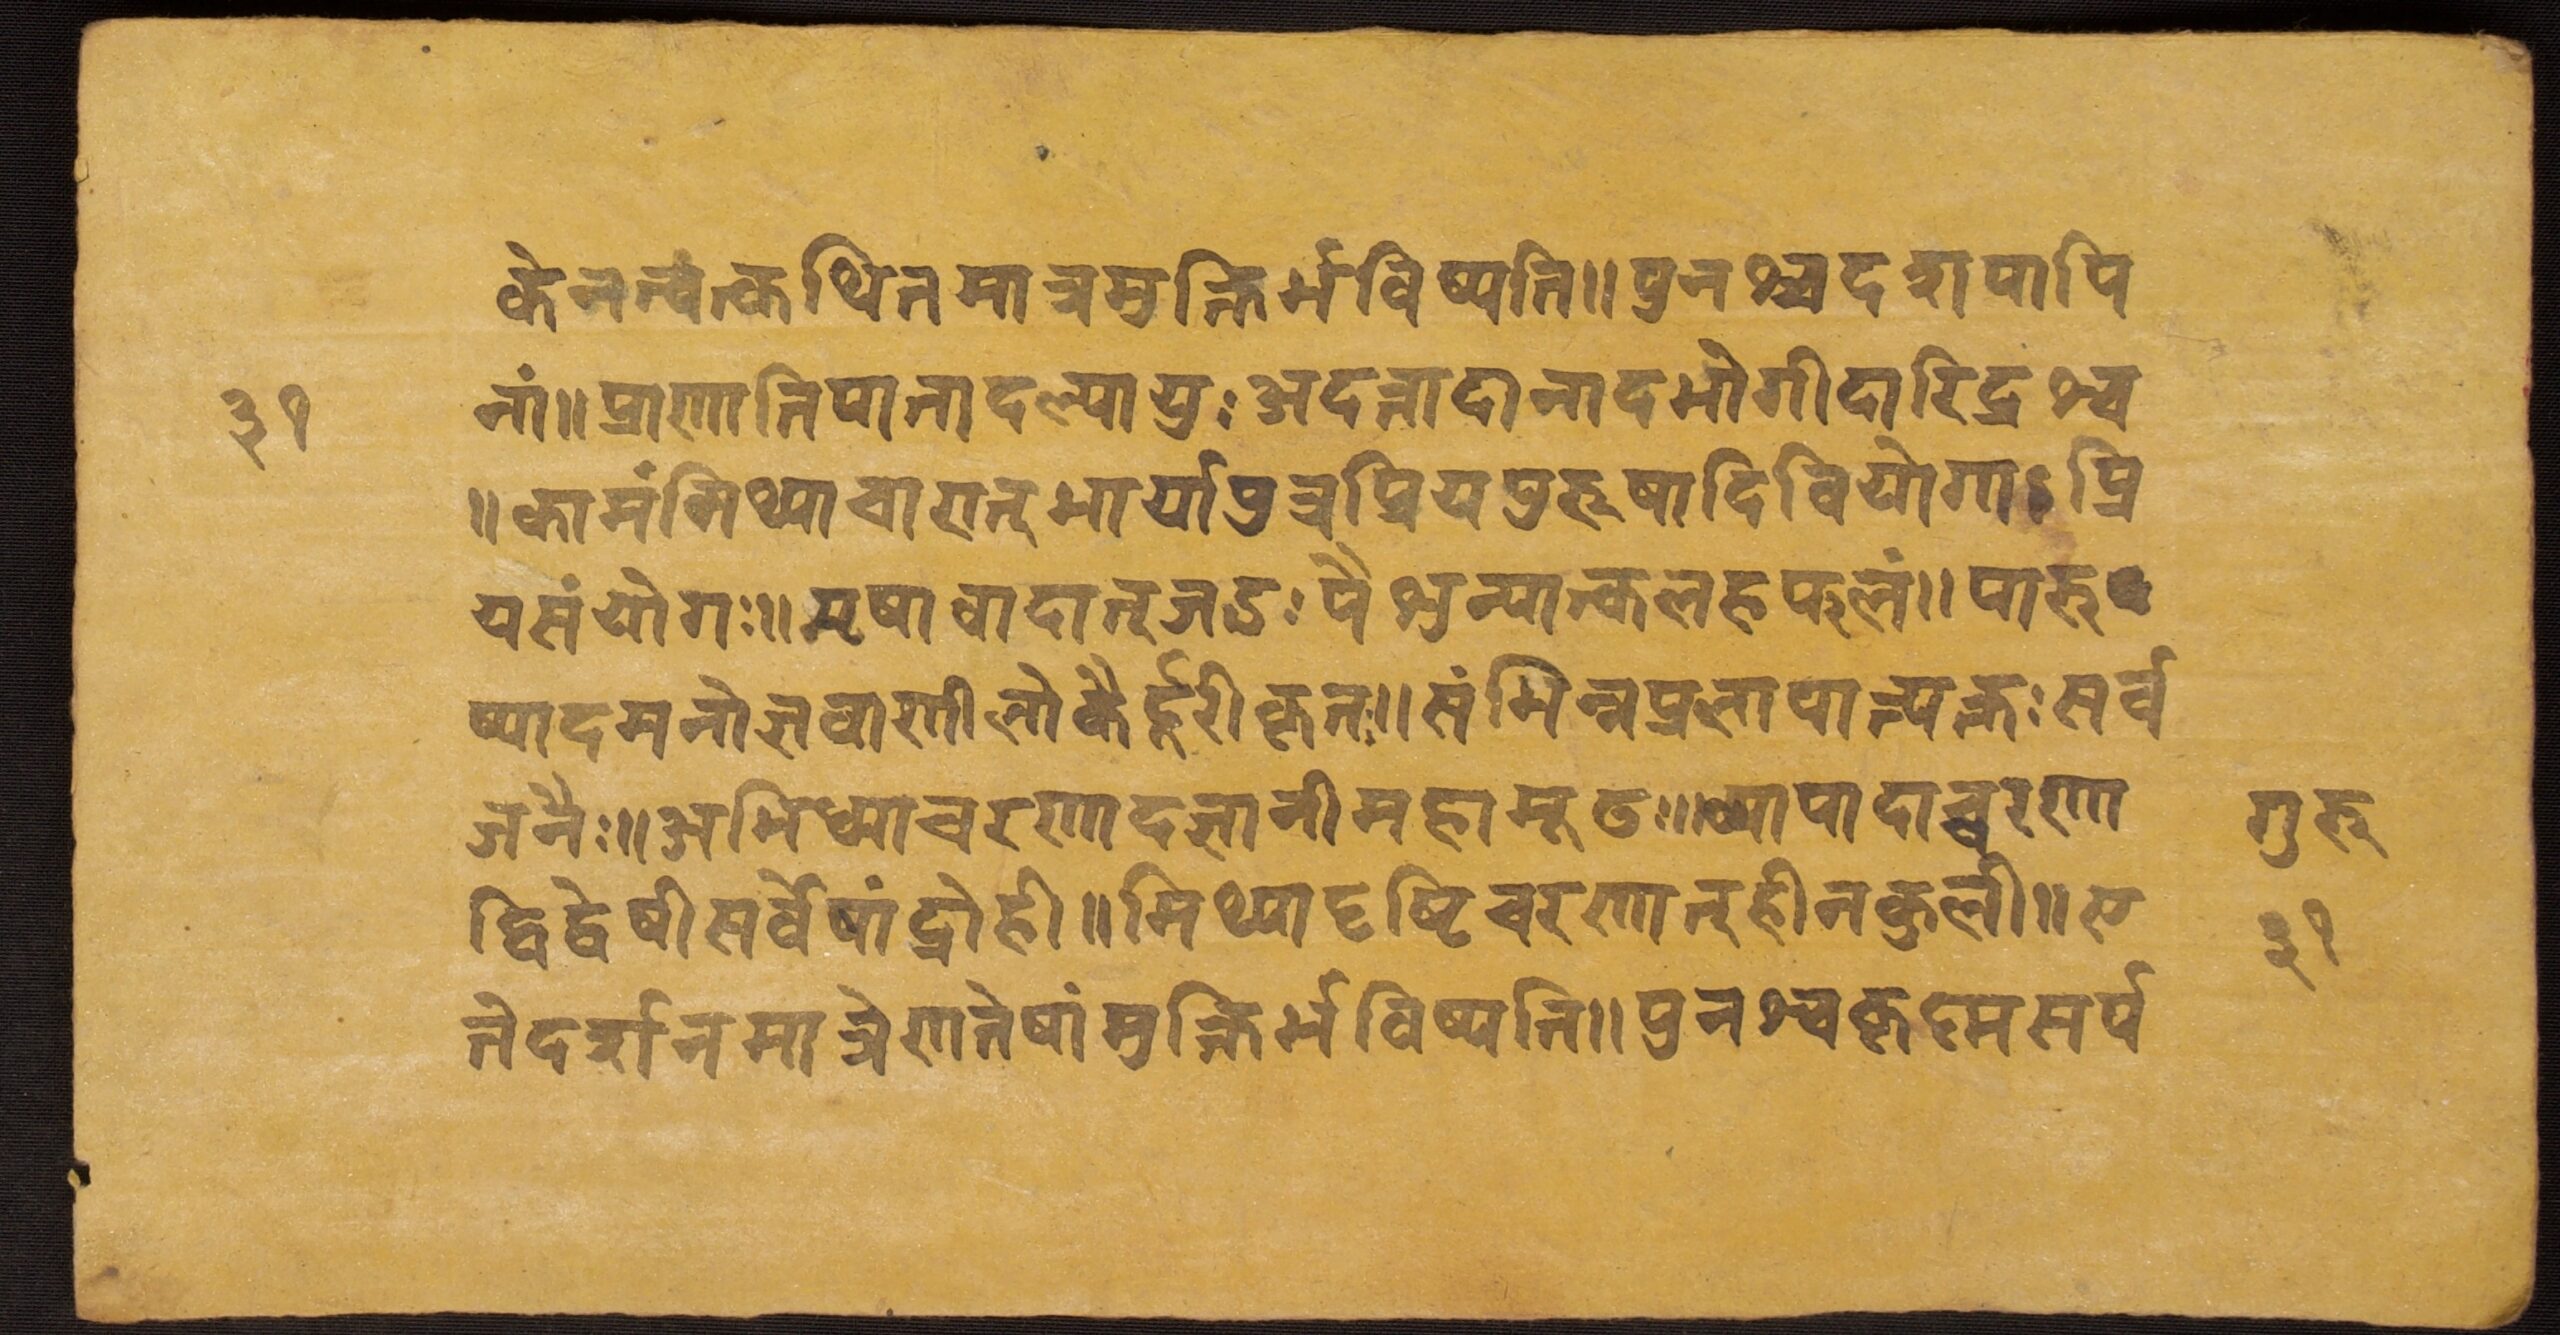 केनत्वंत्कथितमात्रमुक्तिर्भविष्यति॥पुनश्चदशपापि
३१
नां॥प्राणातिपातादल्पायुःअदत्तादानादभोगीदारिद्रश्च
॥कामंमिथ्याचारात्भार्यापुत्रप्रियपुरूषादिवियोगाऽप्रि
यसंयोगः॥मृषावादात्जडःपैशुन्यात्कलहफलं॥पारु
ष्यादमनोज्ञवाणीलोकैर्दूरीकृतः॥संभिन्नप्रलापात्त्यक्तःसर्व
जनैः॥अभिध्याचरणादज्ञानीमहामूढः॥व्यापादाच्चरणा
गुरू
द्विद्वेषीसर्वेषांद्रोही॥मिथ्यादृष्टिचरणात्हीनकुली॥ए
३१
तेदर्शनमात्रेणतेषांमुक्तिर्भविष्यति॥पुनश्चकृदमसर्प